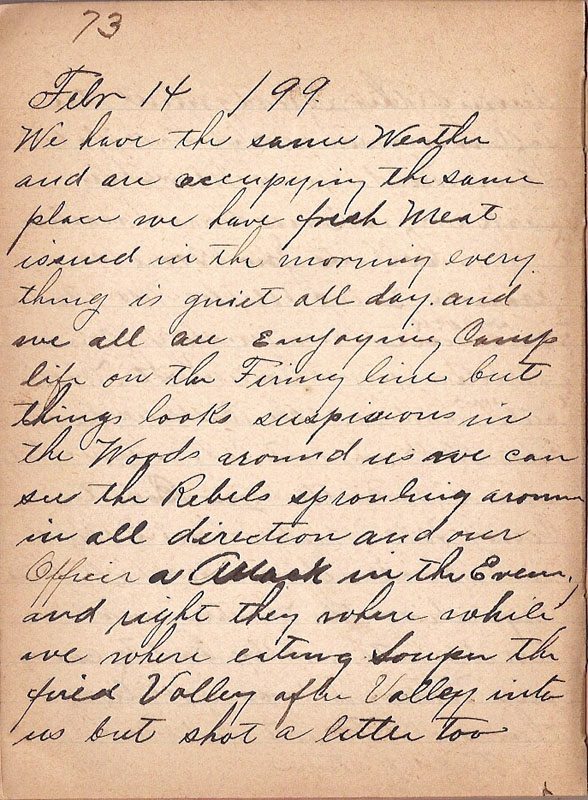 73
Febr 14 / 99.
We have the same Weather
and are occupying the same
place we have fresh Meat
issued in the morning every
thing is quiet all day. and
we all are Enjoying Camp
life on the Firing line but
things looks suspicious in
the Woods around us we can
see the Rebels sprouling aroun
in all direction and our
Officir a Attack in the Evening
and right they where while
we where eating Souper the
fired Volley after Volley into
us but shot a letter too